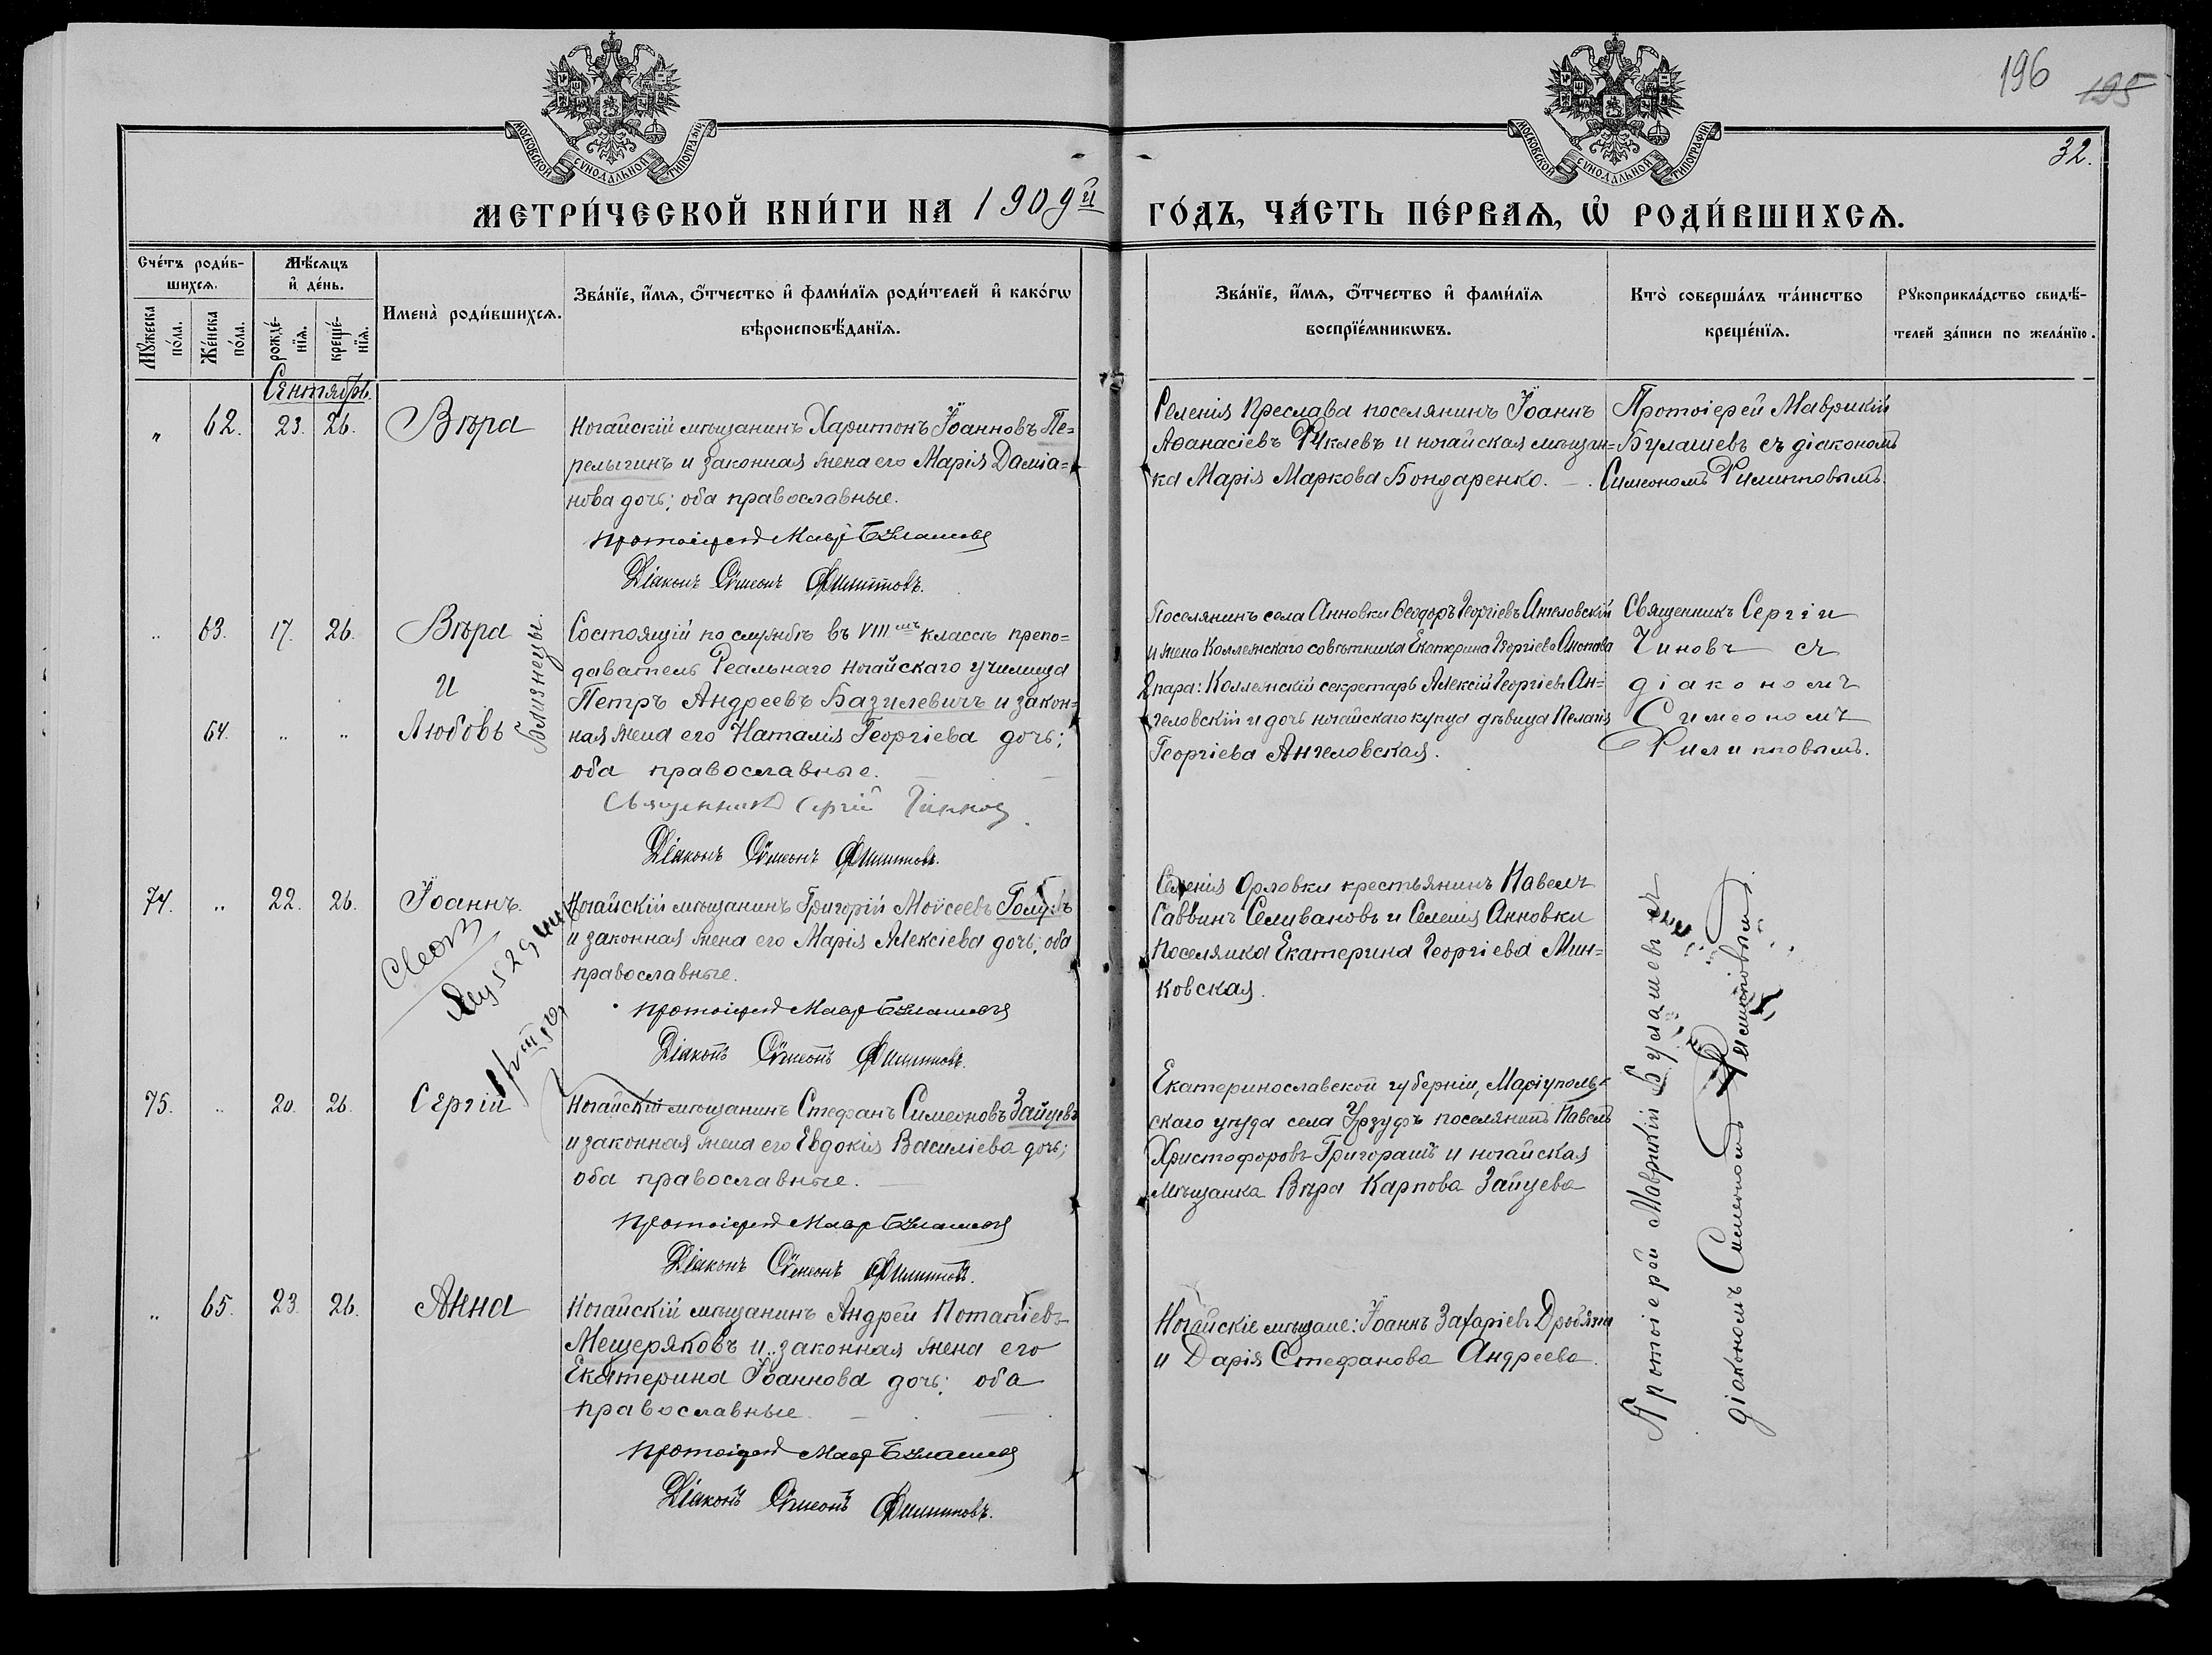 196 195
32.
МОСКОВСКОЙ СѴНОДАЛЬНОЙ ТИПОГРАФІИ.
МОСКОВСКОЙ СѴНОДАЛЬНОЙ ТИПОГРАФІИ.
МЕТРИ́ЧЕСКОЙ КНИ́ГИ НА 1909й ГО́ДЪ, ЧА́СТЬ ПЕ́РВАѦ, Ѽ РОДИ́ВШИХСѦ.
Сче́тъ роди́в-
шихсѧ.
Мꙋ́жеска
по́ла.
Же́нска
по́ла.
Мѣ́сѧцъ
и҆ де́нь.
рожде́-
нїѧ.
креще́-
нїѧ.
Имена̀ роди́вшихсѧ.
Зва́нїе, и҆́мѧ, ѻ҆́тчество и҆ фами́лїѧ роди́телей и҆ како́гѡ
вѣроисповѣ́данїѧ.
Зва́нїе, и҆́мѧ, ѻ҆́тчество и҆ фами́лїѧ
воспрїе́мникѡвъ.
Кто̀ соверша́лъ та́инство
креще́нїѧ.
Рꙋкоприкла́дство свидѣ́-
телей за́писи по жела́нїю.
Сентябрь.
„ 62. 23. 26. Вѣра
Ногайскій мѣщанинъ Харитонъ Іоанновъ Пе=
релыгинъ и законная жена его Марія Даміа=
нова дочь; оба православные.
Протоіерей Мавр Булашевъ
Діаконъ Сѵмеонъ Филипповъ.
Селенія Преслава поселянинъ Іоаннъ
Аѳанасіевъ и ногайская мѣщан=
ка Марія Маркова Бондаренко.
Протоіерей Маврикій
Булашевъ съ діакономъ
Симеономъ Филипповымъ.
„ 63. 17. 26. Вѣра
и
64. „ „ Любовь
близнецы.
Состоящій по службѣ въ VIII мъ классѣ препо=
даватель Реальнаго ногайскаго училища
Петръ Андреевъ Базилевичъ и закон=
ная жена его Наталія Георгіева дочь;
оба православные.
Священникъ Сергій Чиновъ
Діаконъ Сѵмеонъ Филипповъ.
Поселянинъ села Анновки Ѳеодоръ Георгіевъ Ангеловскій
и жена Коллежскаго совѣтника Екатерина Георгіева
2 пара: Коллежскій секретарь Алексій Георгіевъ Ан=
геловскій и дочь ногайскаго купца дѣвица Пелагія
Георгіева Ангеловская.
Священникъ Сергій
Чиновъ съ
діакономъ
Симеономъ
Филипповымъ.
74. „ 22. 26. Іоаннъ.
Ногайскій мѣщанинъ Григорій Моѵсеевъ Голубъ
и законная жена его Марія Алексіева дочь; оба
православные.
Протоіерей Мавр Булашевъ
Діаконъ Сѵмеонъ Филипповъ.
Селенія Орловки крестьянинъ Павелъ
Саввинъ Селивановъ и Селенія Анновки
поселянка Екатерина Георгіева Мин=
ковская.
Протоіерей Маврикій Булашевъ съ
діакономъ Симеономъ Филипповымъ.
75. „ 20. 26. Сергій
Ногайскій мѣщанинъ Стефанъ Симеоновъ Зайцевъ
и законная жена его Евдокія Василіева дочь;
оба православные.
Протоіерей Мавр Булашевъ
Діаконъ Сѵмеонъ Филипповъ.
Екатеринославской губерніи, Маріуполь=
скаго уѣзда села Урзуфъ поселянинъ Павелъ
Христофоровъ Григорашъ и ногайская
мѣщанка Вѣра Карпова Зайцева
„ 65. 23. 26. Анна
Ногайскій мѣщанинъ Андрей Потапіевъ
Мещеряковъ и законная жена его
Екатерина Іоаннова дочь; оба
православные.
Протоіерей Мавр Булашевъ
Діаконъ Сѵмеонъ Филипповъ.
Ногайскіе мѣщане: Іоаннъ Захаріевъ
и Дарія Стефанова Андреева.